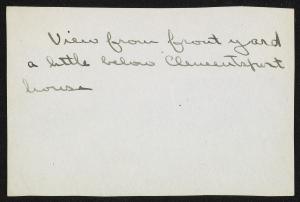 View from front yard
a little below Clementsport
house